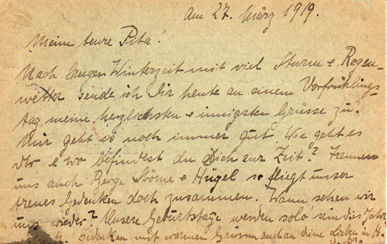 am 27. März 1919.
Meine teure Pita!
Nach langer Winterzeit mit viel Sturm & Regen-
wetter sende ich Dir heute an einem Vorfrühlings
tag meine herzlichsten & innigsten Grüsse zu.
Mir geht es noch immer gut. Wie geht es
Dir & wo befindest du Dich zur Zeit? Trennen
uns auch Berge Ströme & Hügel so fliegt unser
treues Gedenken doch zusammen. Wann sehen wir
uns wieder? Unsere Geburtstage werden solo sein dies Jahr
gedenken mit warmen Grüssen auch an deine Lieben